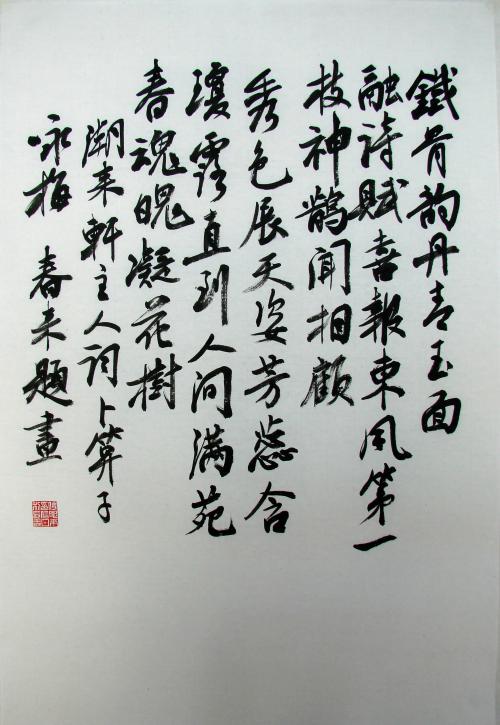 鐵骨韵丹青玉面
融詩賦喜報東风第一
枝神鵲闻相顧
秀色展天姿芳蕊含
瓊露直到人间满苑
春魂魄凝花樹
溯来軒主人词卜算子
咏梅 春来題畫